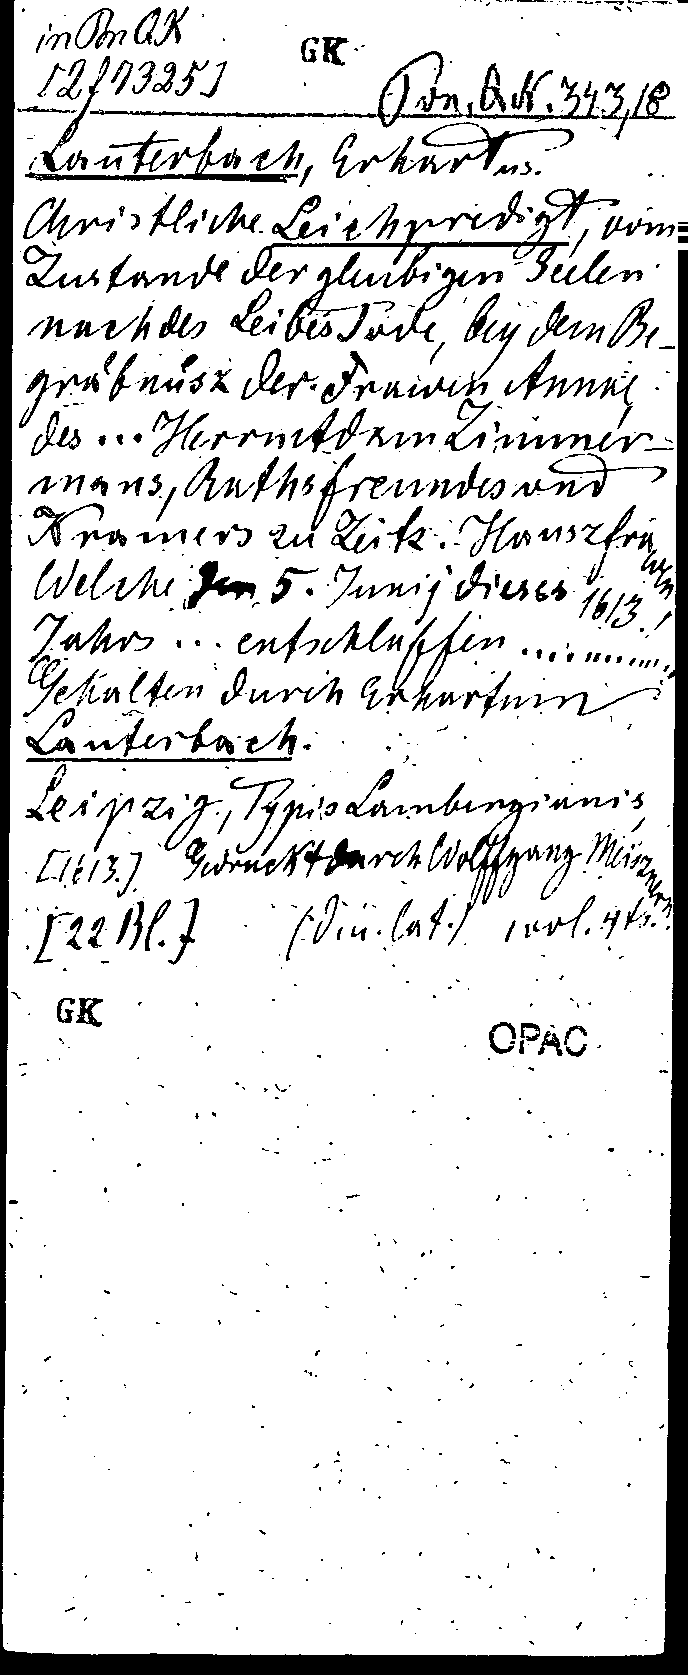 in Bn QK GK
[2f7325]
Pon. QK. 343,18
Lauterbach, Erhartus.
Christliche Leichpredigt, vom
Zustande der gleubigen Seelen
nach des Leibes Tode, bey dem Be-
gräbnüsz der Frawen Annae,
des ... Herrn Adam Zimmer-
mans, Rathsfreundes und
Kramers zu Zeitz. Hauszfrawen
Welche den 5. Junij dieses 1613.!
Jahrs ... entschlaffen ............
Gehalten durch Erhartum
Lauterbach.
Leipzig, Typis Lambergianis,
[1613.] Gedruckt durch Wolffgang Meiszner
[22 Bl.] (Din. lat.) vol. 4to.
GK
OPAC